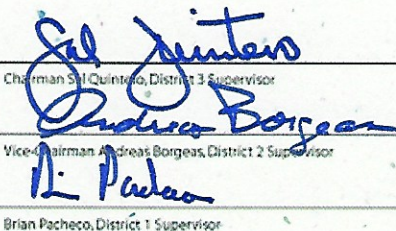 Sal Quintero
Chairman Sal Quintero, District 3 Supervisor
Andreas Borgeas
Vice-Chairman Andreas Borgeas, District 2 Supervisor
Brian Pacheco, District 1 Supervisor